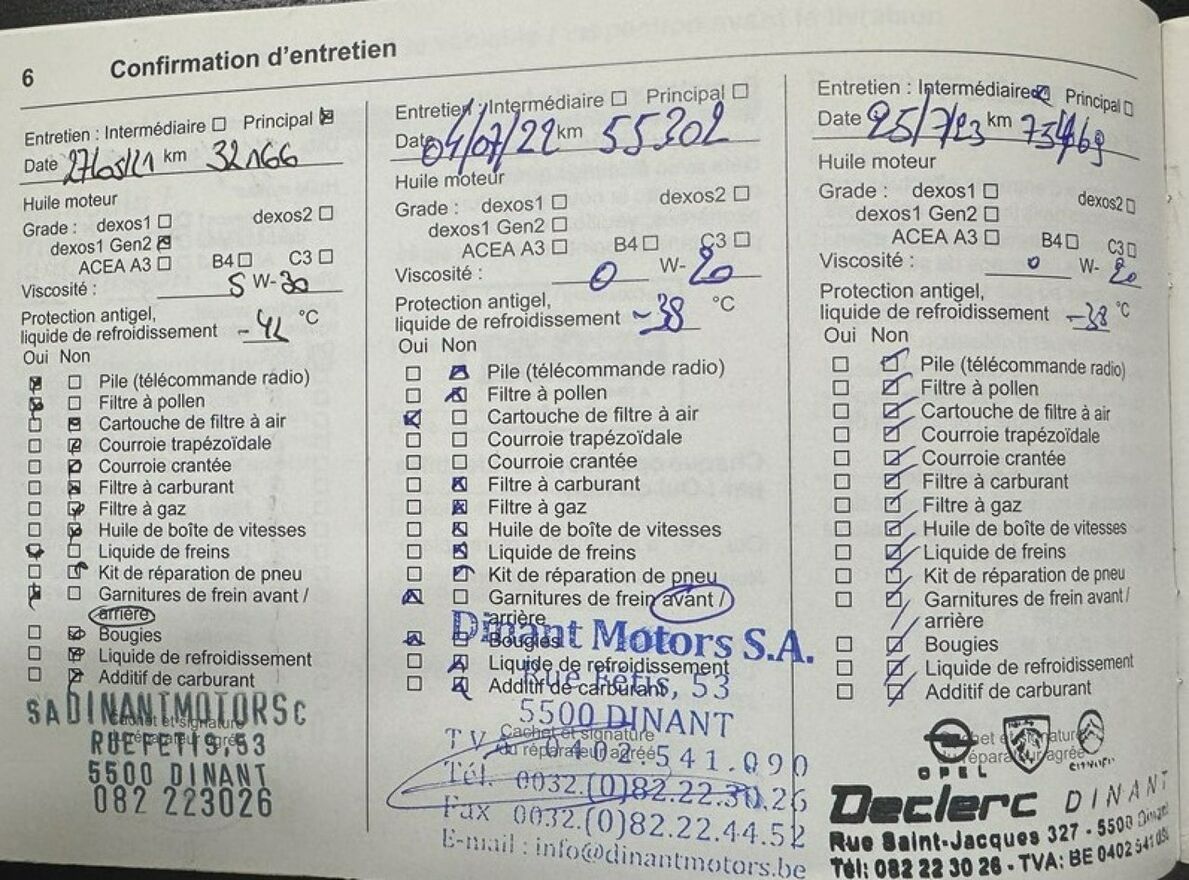 6 Confirmation d'entretien
Entretien : Intermédiaire ☐ Principal ☒
Date 27/05/21 km 32166
Huile moteur
Grade : dexos1 ☐ dexos2 ☐
dexos1 Gen2 ☒
ACEA A3 ☐ B4 ☐ C3 ☐
Viscosité : 5 W-30
Protection antigel,
liquide de refroidissement -42 °C
Oui Non
☒ ☐ Pile (télécommande radio)
☒ ☐ Filtre à pollen
☐ ☒ Cartouche de filtre à air
☐ ☒ Courroie trapézoïdale
☐ ☒ Courroie crantée
☐ ☒ Filtre à carburant
☐ ☒ Filtre à gaz
☐ ☒ Huile de boîte de vitesses
☒ ☐ Liquide de freins
☐ ☒ Kit de réparation de pneu
☒ ☐ Garnitures de frein avant /
arrière
☐ ☒ Bougies
☐ ☒ Liquide de refroidissement
☐ ☒ Additif de carburant
Cachet et signature
du réparateur agréé
SA DINANTMOTORS
RUE FETIS,53
5500 DINANT
082 223026
Entretien : Intermédiaire ☐ Principal ☐
Date 04/07/22 km 55302
Huile moteur
Grade : dexos1 ☐ dexos2 ☐
dexos1 Gen2 ☐
ACEA A3 ☐ B4 ☐ C3 ☐
Viscosité : 0 W- 20
Protection antigel,
liquide de refroidissement -38 °C
Oui Non
☐ ☒ Pile (télécommande radio)
☐ ☒ Filtre à pollen
☒ ☐ Cartouche de filtre à air
☐ ☐ Courroie trapézoïdale
☐ ☐ Courroie crantée
☐ ☒ Filtre à carburant
☐ ☒ Filtre à gaz
☐ ☒ Huile de boîte de vitesses
☐ ☒ Liquide de freins
☐ ☒ Kit de réparation de pneu
☒ ☐ Garnitures de frein avant /
arrière
☒ ☐ Bougies
☐ ☒ Liquide de refroidissement
☐ ☒ Additif de carburant
Cachet et signature
du réparateur agréé
Dinant Motors S.A.
Rue Fétis, 53
5500 DINANT
TV 0402.541.090
Tél. 0032.(0)82.22.30.26
Fax 0032.(0)82.22.44.52
E-mail : info@dinantmotors.be
Entretien : Intermédiaire ☒ Principal ☐
Date 25/7/23 km
Huile moteur
Grade : dexos1 ☐ dexos2 ☐
dexos1 Gen2 ☐
ACEA A3 ☐ B4 ☐ C3 ☐
Viscosité : 0 W- 20
Protection antigel,
liquide de refroidissement -38 °C
Oui Non
☐ ☑ Pile (télécommande radio)
☐ ☑ Filtre à pollen
☐ ☑ Cartouche de filtre à air
☐ ☑ Courroie trapézoïdale
☐ ☑ Courroie crantée
☐ ☑ Filtre à carburant
☐ ☑ Filtre à gaz
☐ ☑ Huile de boîte de vitesses
☐ ☑ Liquide de freins
☐ ☑ Kit de réparation de pneu
☐ ☑ Garnitures de frein avant /
arrière
☐ ☑ Bougies
☐ ☑ Liquide de refroidissement
☐ ☑ Additif de carburant
Cachet et signature
du réparateur agréé
OPEL CITROËN
Declerc DINANT
Rue Saint-Jacques 327 - 5500 Dinant
Tél: 082 22 30 26 - TVA: BE 0402 541 090